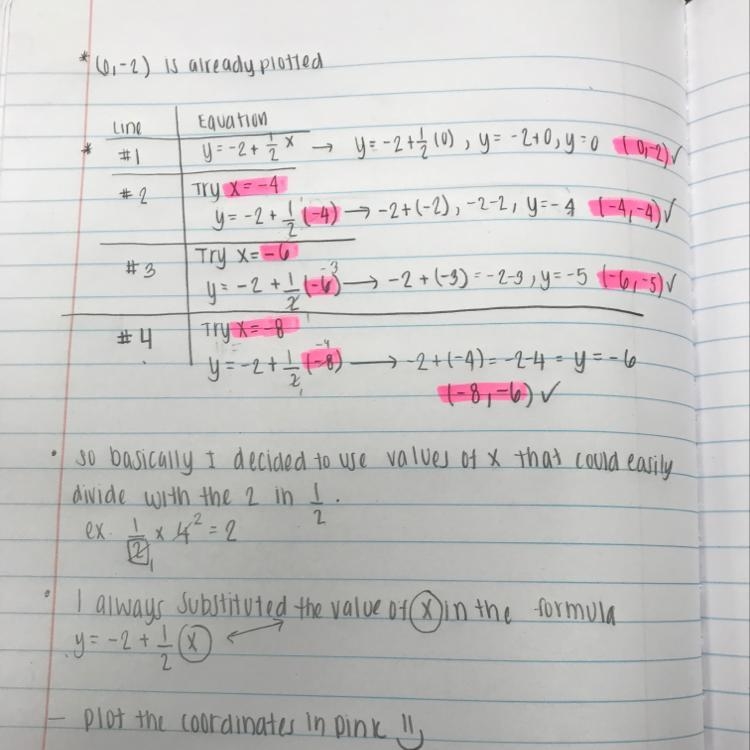 * (0,-2) is already plotted
Line Equation
* #1 y=-2+1/2 x → y=-2+1/2(0), y=-2+0, y=0 (0,-2)✓
#2 Try x=-4
y=-2+1/2(-4) → -2+(-2), -2-2, y=-4 (-4,-4)✓
#3 Try x=-6
y=-2+1/2(-6)-3 → -2+(-3)=-2-3, y=-5 (-6,-5)✓
#4 Try x=-8
y=-2+1/2(-8)-4 → -2+(-4)=-2-4=y=-6
(-8,-6)✓
• so basically I decided to use values of x that could easily
divide with the 2 in 1/2.
ex. 1/2 x 4² = 2
1
• I always substituted the value of x in the formula
y=-2+1/2(x)
- plot the coordinates in pink !!)